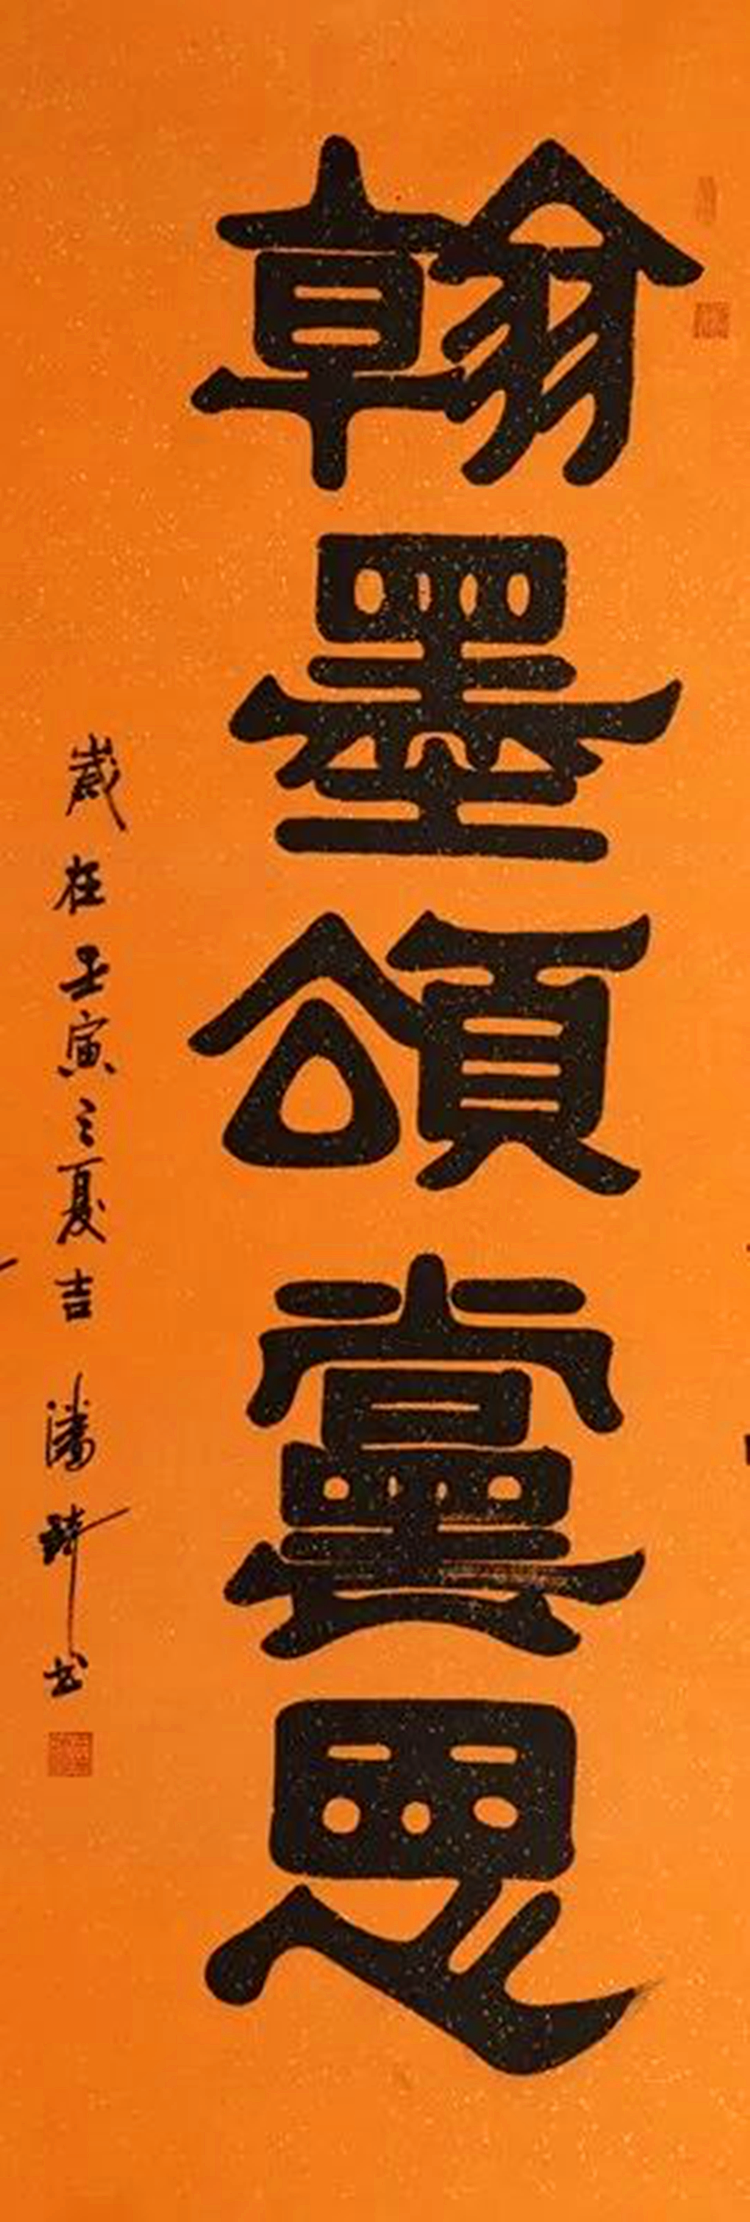 翰墨頌黨恩
歲在壬寅之夏吉潘琦书